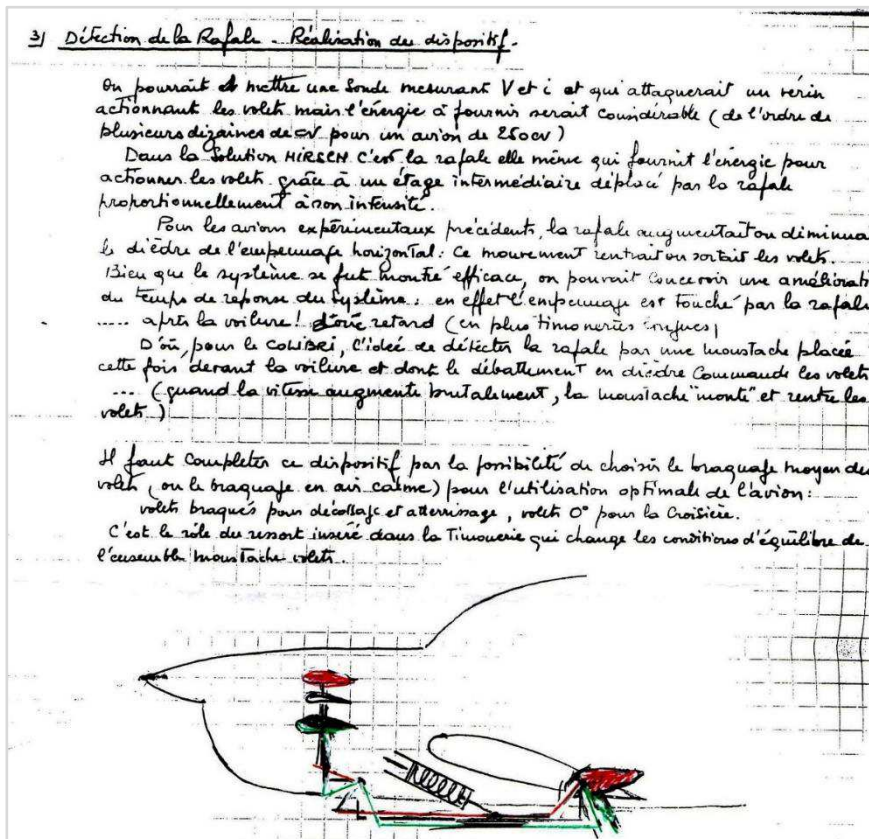 3) Détection de la Rafale - Réalisation du dispositif.
On pourrait mettre une sonde mesurant V et i et qui attaquerait un vérin
actionnant les volets mais l'énergie à fournir serait considérable (de l'ordre de
plusieurs dizaines de cv pour un avion de 250cv)
Dans la Solution HIRSCH c'est la rafale elle même qui fournit l'énergie pour
actionner les volets grâce à un étage intermédiaire déplacé par la rafale
proportionnellement à son intensité.
Pour les avions expérimentaux précédents, la rafale augmentait ou diminua
le dièdre de l'empennage horizontal: ce mouvement rentrait ou sortait les volets.
Bien que le système se fut montré efficace, on pouvait concevoir une améliorati
du temps de réponse du système: en effet l'empennage est touché par la rafale
..... après la voilure! d'où retard (en plus timoneries longues)
D'où, pour le COLIBRI, l'idée de détecter la rafale par une moustache placée
cette fois devant la voilure et dont le débattement en dièdre commande les volets
... (quand la vitesse augmente brutalement, la moustache "monte" et rentre les
volets)
Il faut completer ce dispositif par la possibilité de choisir le braquage moyen des
volets (ou le braquage en air calme) pour l'utilisation optimale de l'avion:
volets braqués pour décollage et atterrissage, volets 0° pour la Croisière.
C'est le rôle du ressort inséré dans la Timonerie qui change les conditions d'équilibre de
l'ensemble moustache volets.